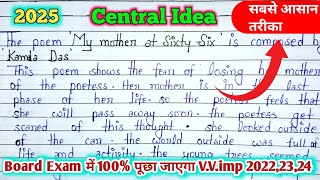 2025
Central Idea
सबसे आसान
तरीका
The poem 'My mother at Sixty Six' is composed by
'Kamla Das'
This poem shows the fear of losing her mother
of the poetess. Her mother is in the last
phase of her life. so the poetess feels that
she will pass away soon. the poetess get
scared of this thought. she looked outside
of the car. the world outside was full of
life and activity. the young trees seemed
Board Exam में 100% पूछा जाएगा V.V.imp 2022,23,24